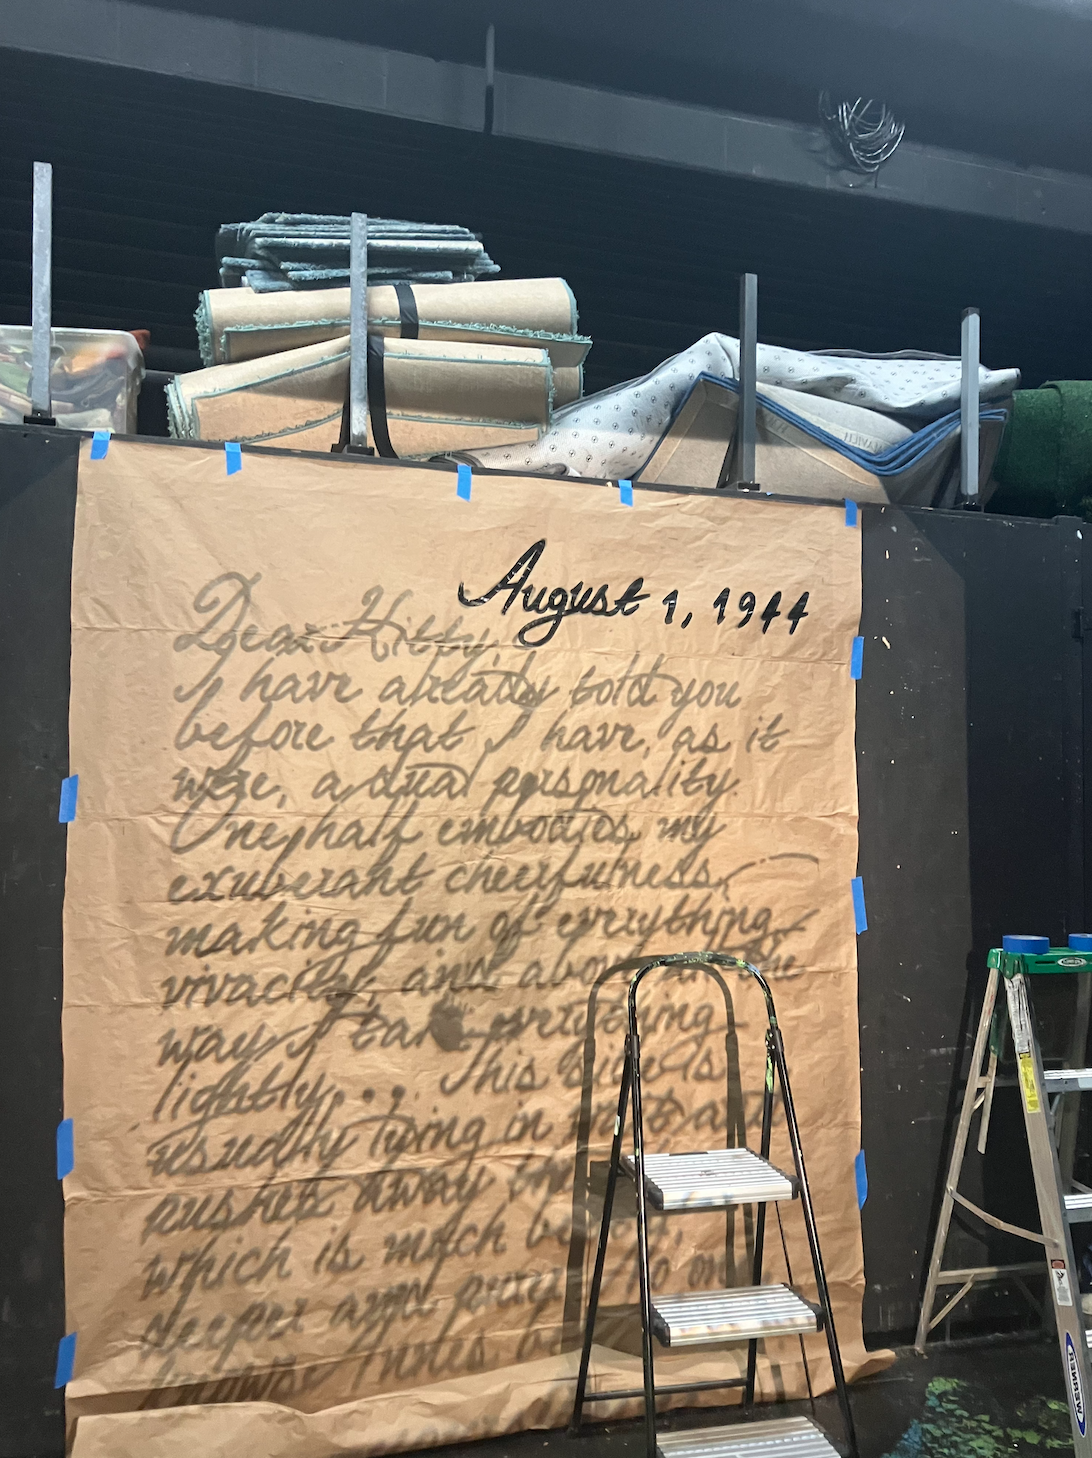 August 1, 1944
Dear Kitty,
I have already told you
before that I have, as it
were, a dual personality.
One half embodies my
exuberant cheerfulness,
making fun of everything
vivacity, and above all the
way I take everything
lightly.... This side is
usually lying in wait and
pushes away
which is much
deeper and purer. No one
knows
WERNER